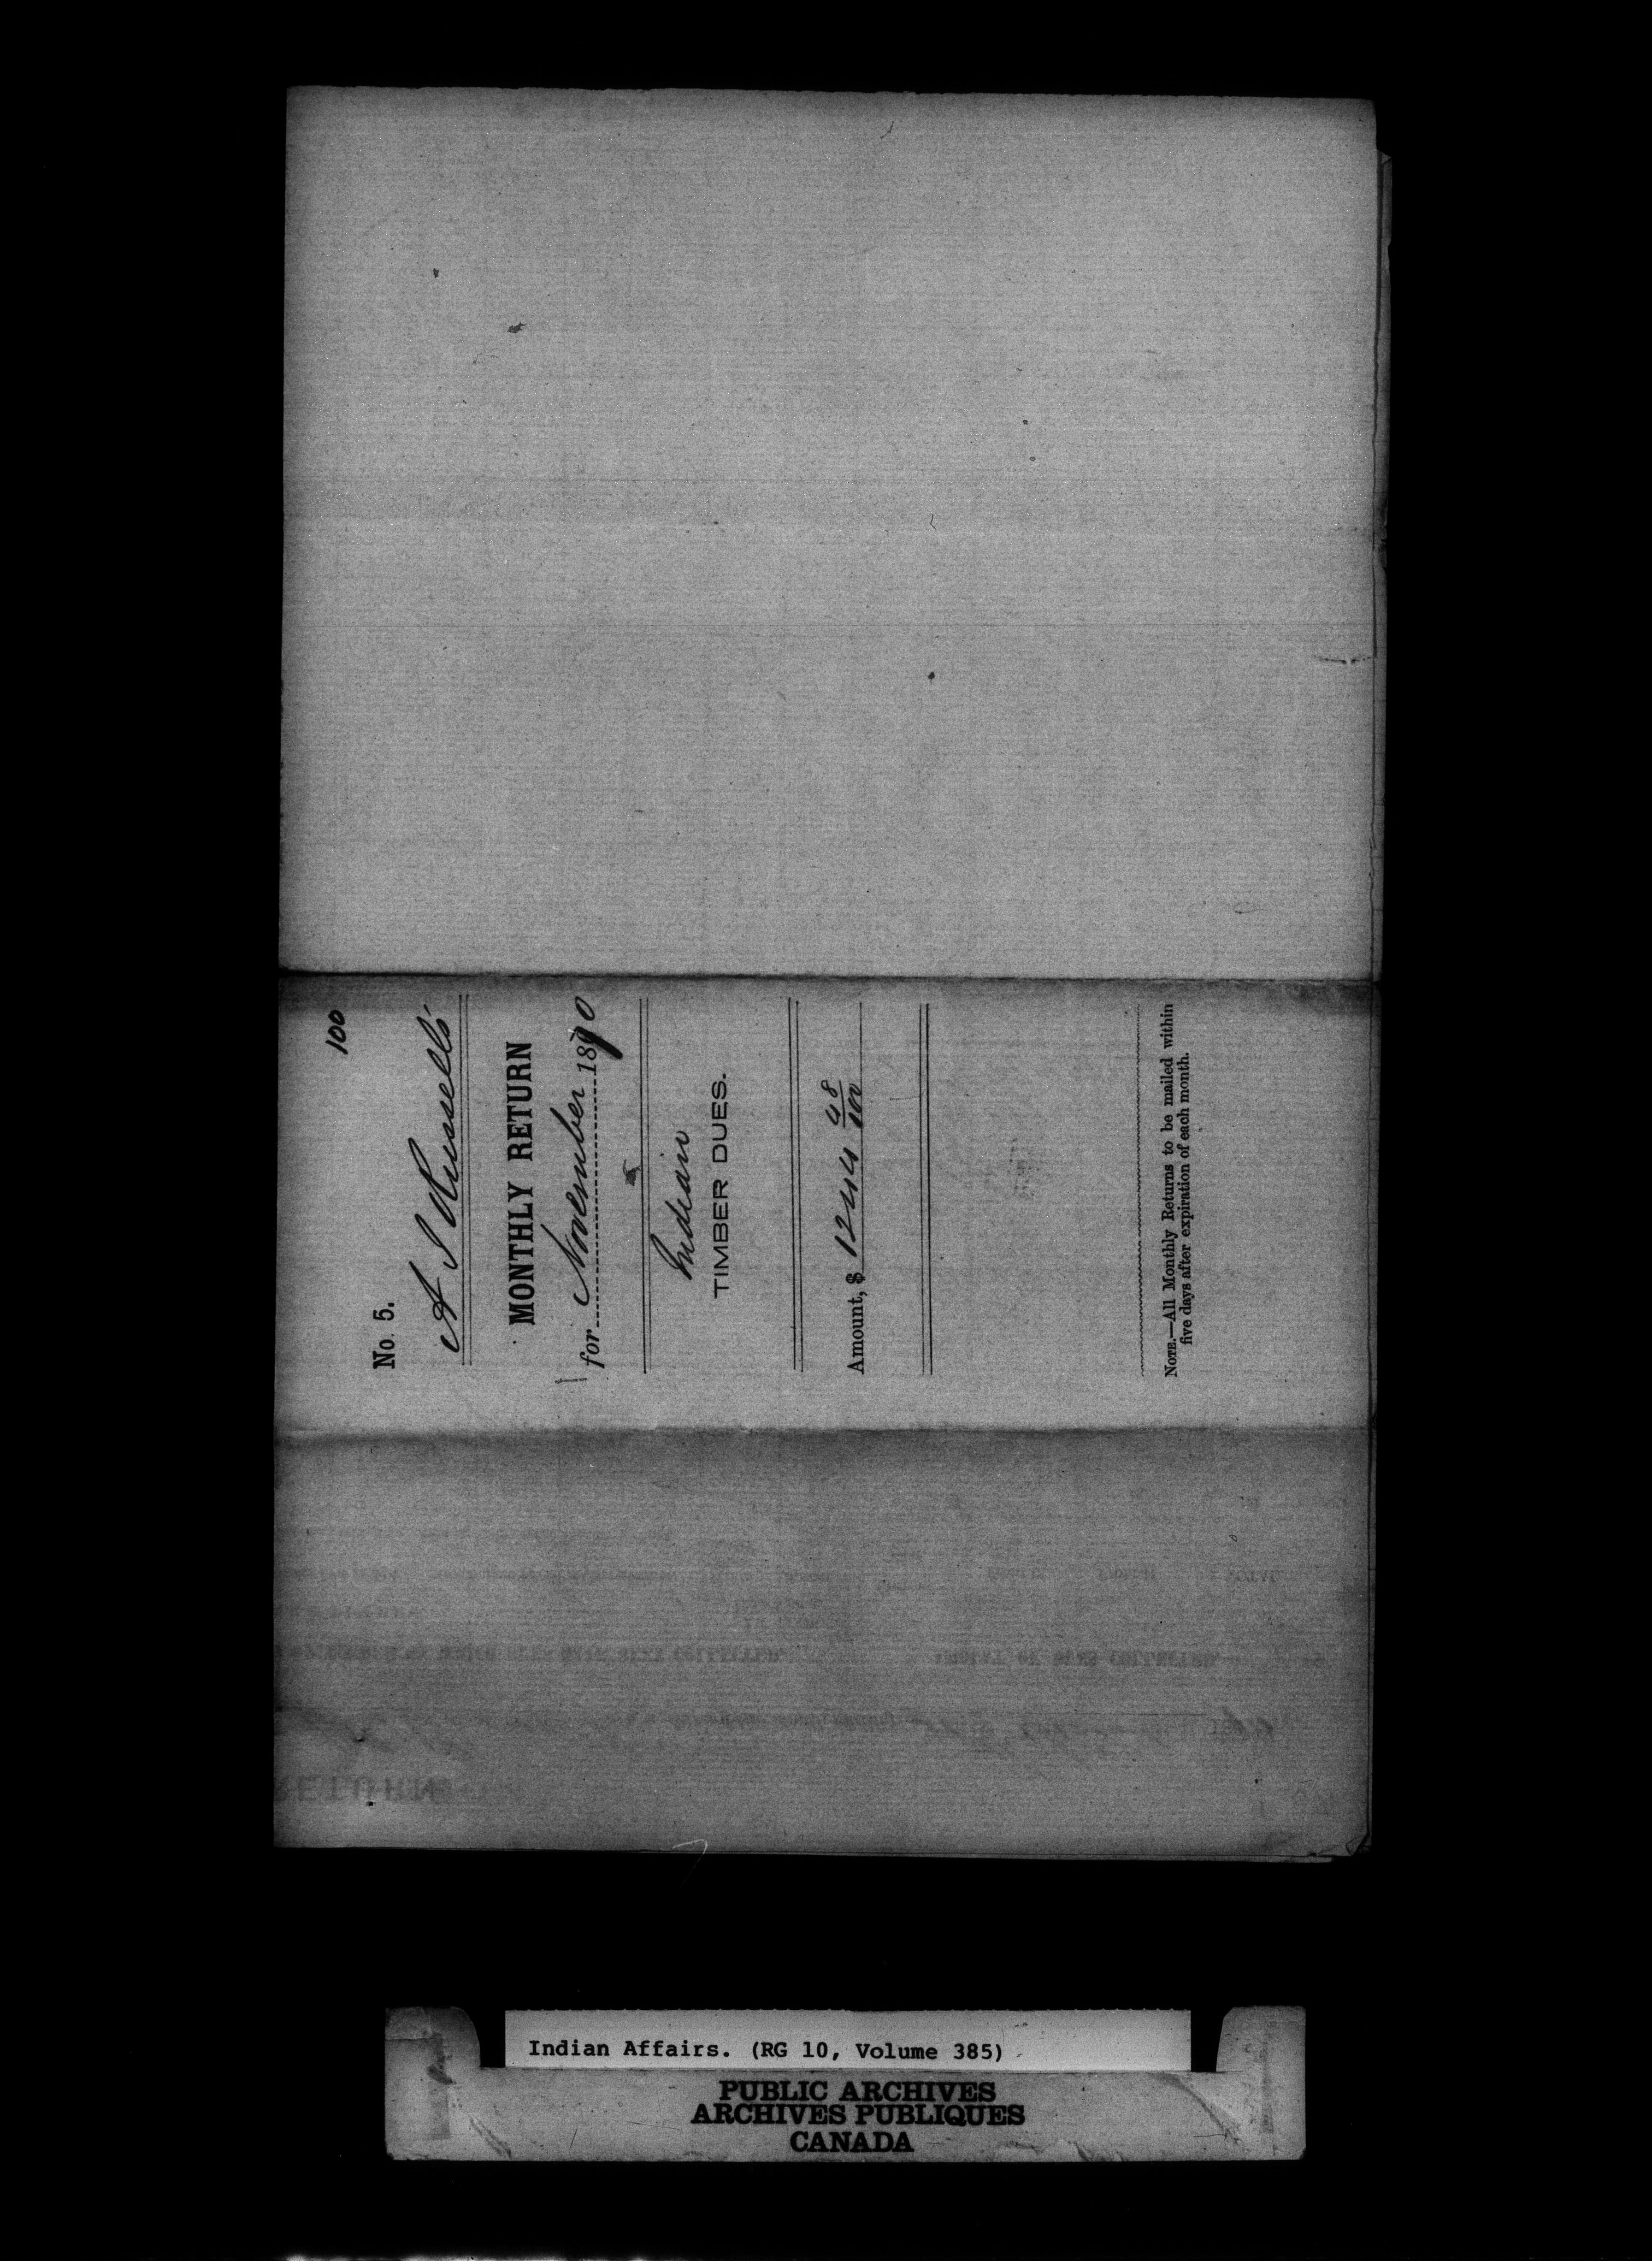 100
No. 5.
A J Russell's
MONTHLY RETURN
for November 1890
Indian
TIMBER DUES.
Amount, $ 1244 48/100
NOTE.—All Monthly Returns to be mailed within
five days after expiration of each month.
RETURN
AMOUNT OF DUES COLLECTED
Indian Affairs. (RG 10, Volume 385)
PUBLIC ARCHIVES
ARCHIVES PUBLIQUES
CANADA